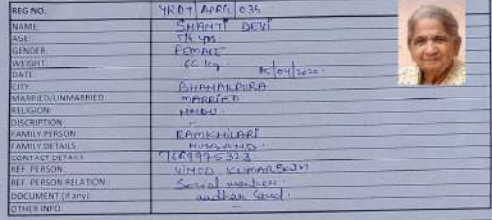 REG NO. YKDT APRIL 035
NAME: SHANTI DEVI
AGE: 76 yrs.
GENDER: FEMALE
WEIGHT: 66 kg.
DATE 05/04/2020.
CITY: BHANAKPURA
MARRIED/UNMARRIED MARRIED
RELIGION: HINDU
DISCRIPTION
FAMILY PERSON RAMKHILARI
FAMILY DETAILS HUSBAND
CONTACT DETAILS
REF. PERSON: VINOD KUMAR
REF. PERSON RELATION: Social worker
DOCUMENT (if any): aadhar Card.
OTHER INFO